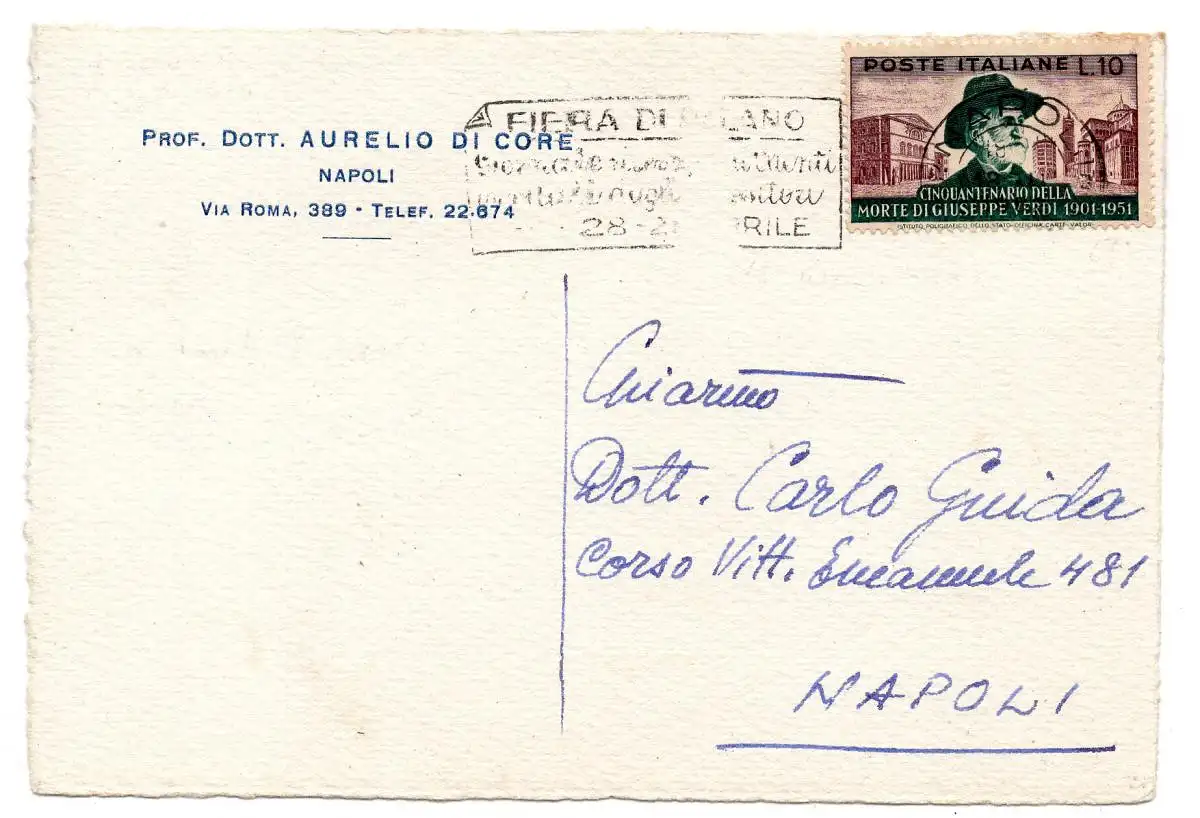 PROF. DOTT. AURELIO DI CORE
NAPOLI
VIA ROMA, 389 - TELEF. 22.674
FIERA DI LANO
28-2 RILE
POSTE ITALIANE L.10
CINQUANTENARIO DELLA
MORTE DI GIUSEPPE VERDI 1901-1951
ISTITUTO POLIGRAFICO DELLO STATO-OFFICINA CARTE-VALORI
Chiarmo
Dott. Carlo Guida
Corso Vitt. Emanuele 481
NAPOLI